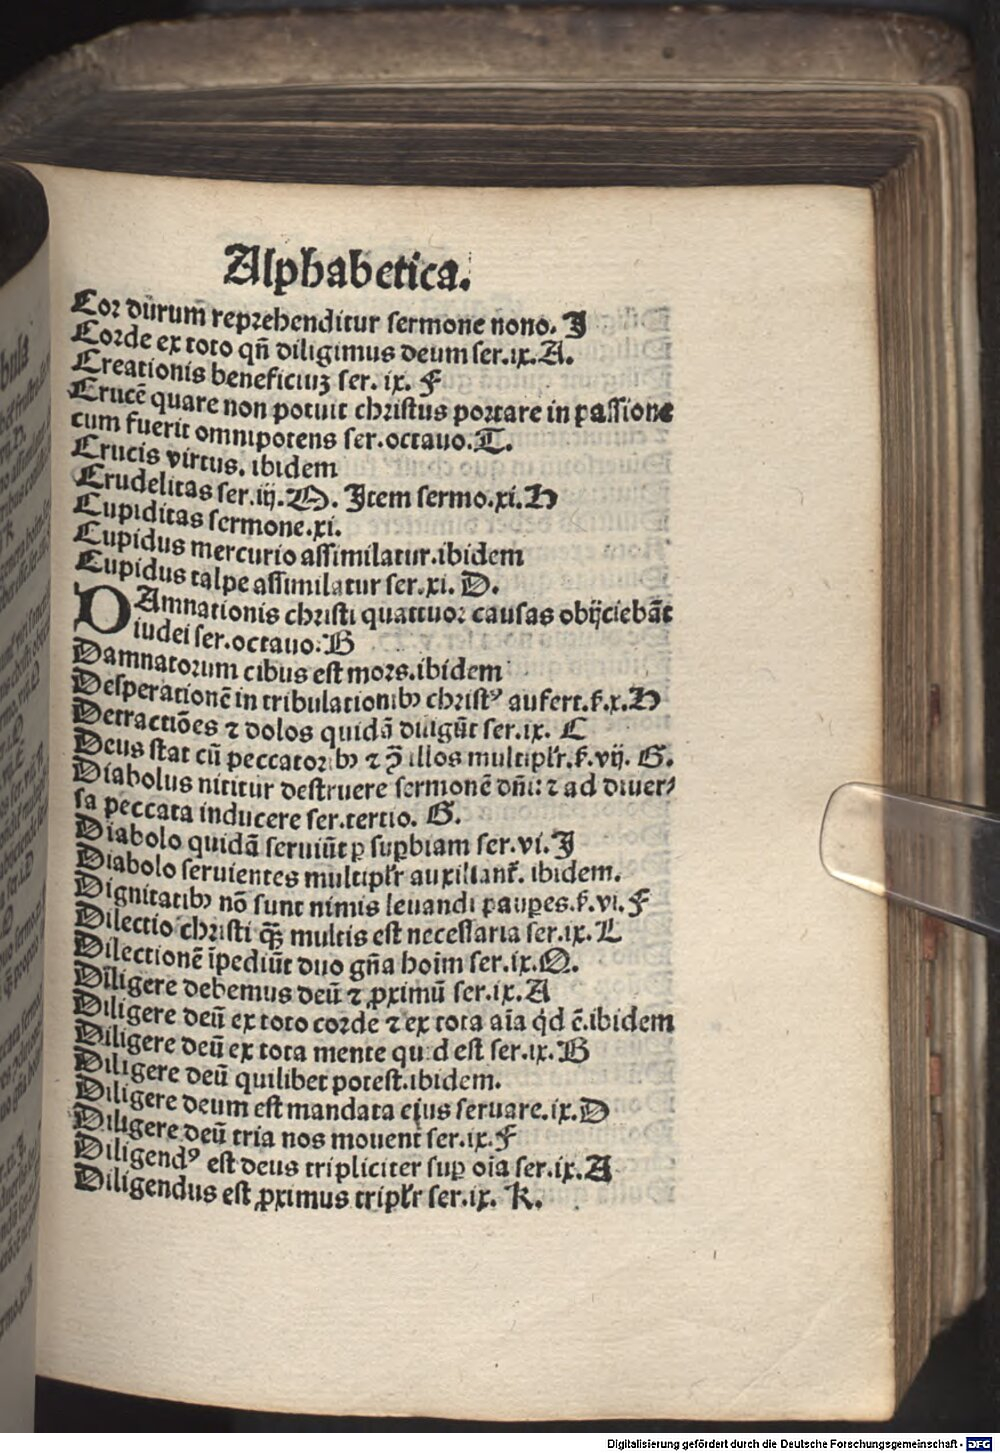 Alphabetica.
Cor durum reprehenditur sermone nono. J
Corde ex toto qñ diligimus deum ser.ix.A.
Creationis beneficiuȝ ser. ix. F
Crucē quare non potuit christus portare in passione
cum fuerit omnipotens ser.octauo.T.
Crucis virtus. ibidem
Crudelitas ser.iij. Item sermo.xi.H
Cupiditas sermone.xi.
Cupidus mercurio assimilatur.ibidem
Cupidus talpe assimilatur ser.xi. D.
DAmnationis christi quattuor causas obijciebāt
iudei ser.octauo.B
Damnatorum cibus est mors.ibidem
Desperationē in tribulationibꝰ christꝰ aufert.ẜ.x.H
Detractiōes ⁊ dolos quidā diligūt ser.ix. C
Deus stat cū peccatoribꝰ ⁊ ꝯ̄ illos multiplr̄.ẜ.vij. G.
Diabolus nititur destruere sermonē dñi: ⁊ ad diuer⸗
sa peccata inducere ser.tertio. G.
Diabolo quidā seruiūt ꝑ suꝑbiam ser.vi.J
Diabolo seruientes multiplr̄ auxiliant᷑. ibidem.
Dignitatibꝰ nō sunt nimis leuandi pauꝑes.ẜ.vi.F
Dilectio christi qꝫ multis est necessaria ser.ix.L
Dilectionē īpediūt duo gña hoīm ser.ix.O.
Diligere debemus deū ⁊ ꝓximū ser.ix.A
Diligere deū ex toto corde ⁊ ex tota aīa qd ē.ibidem
Diligere deū ex tota mente qu d est ser.ix.B
Diligere deū quilibet potest.ibidem.
Diligere deum est mandata ejus seruare.ix.D
Diligere deū tria nos mouent ser.ix.F
Diligendꝰ est deus tripliciter suꝑ oīa ser.ix.A
Diligendus est ꝓximus triplr̄ ser.ix. K.
Digitalisierung gefördert durch die Deutsche Forschungsgemeinschaft - DFG